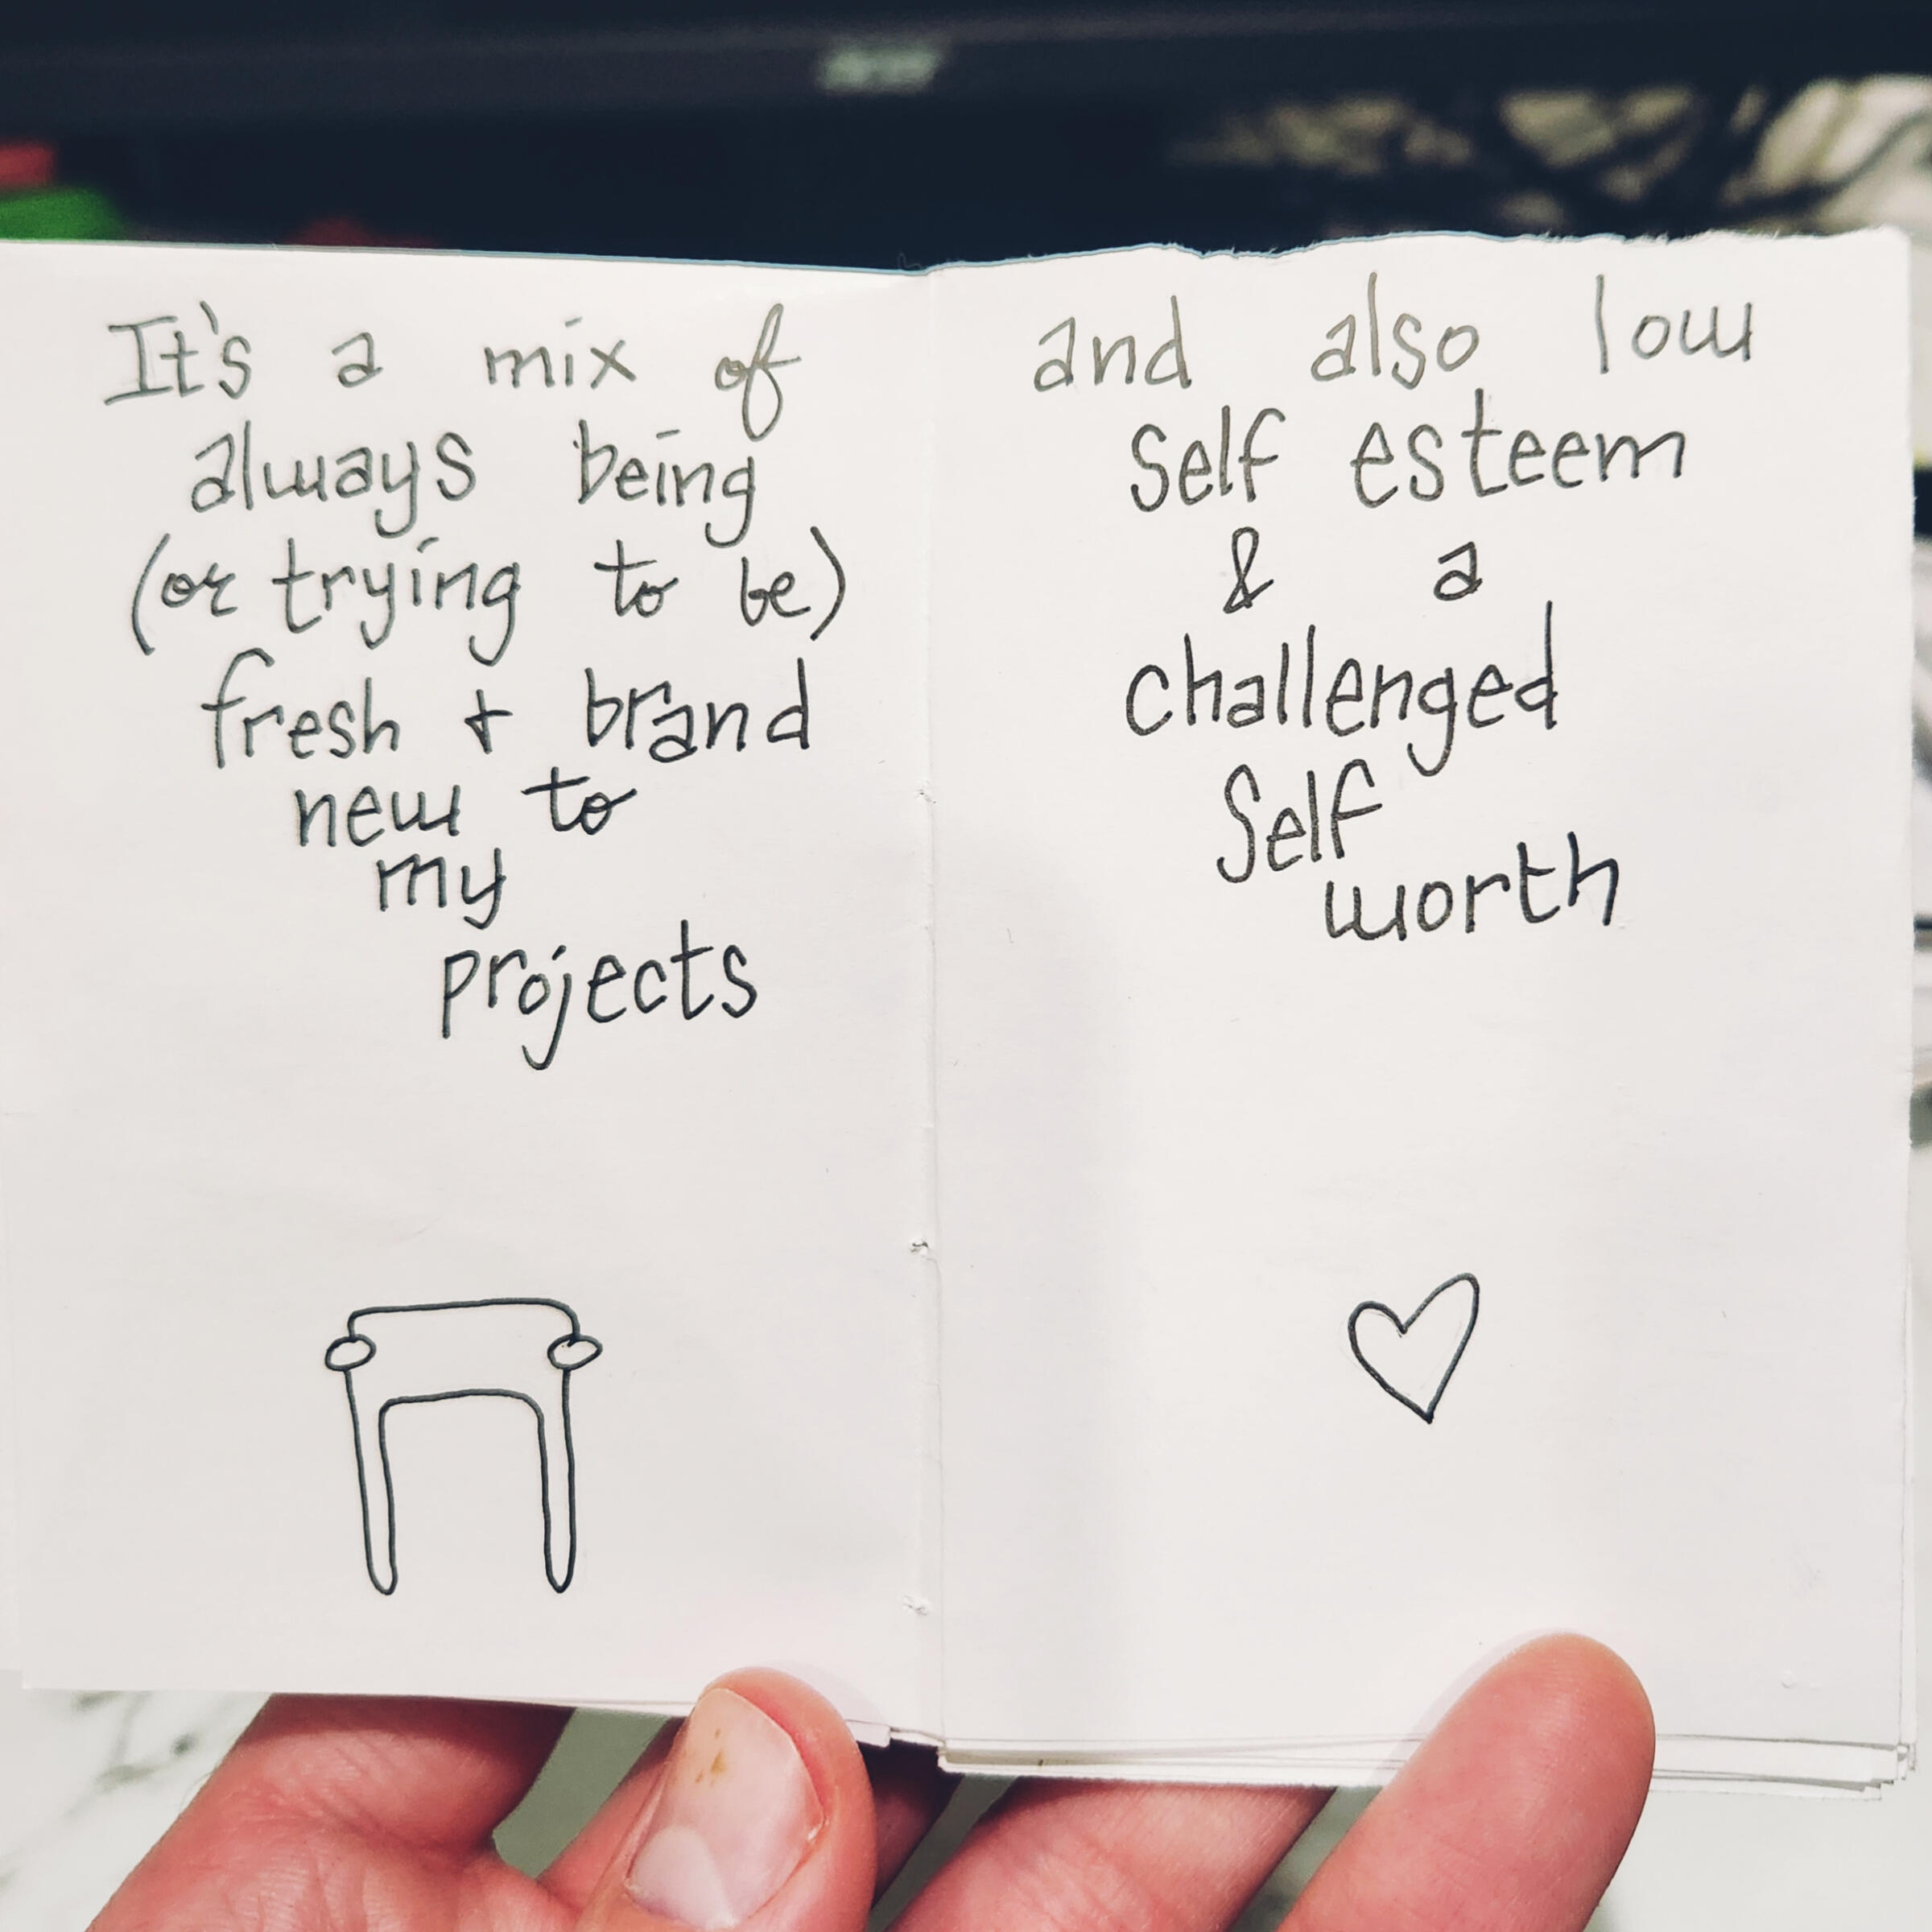 It's a mix of
always being
(or trying to be)
fresh + brand
new to
my
projects
and also low
self esteem
& a
challenged
self
worth